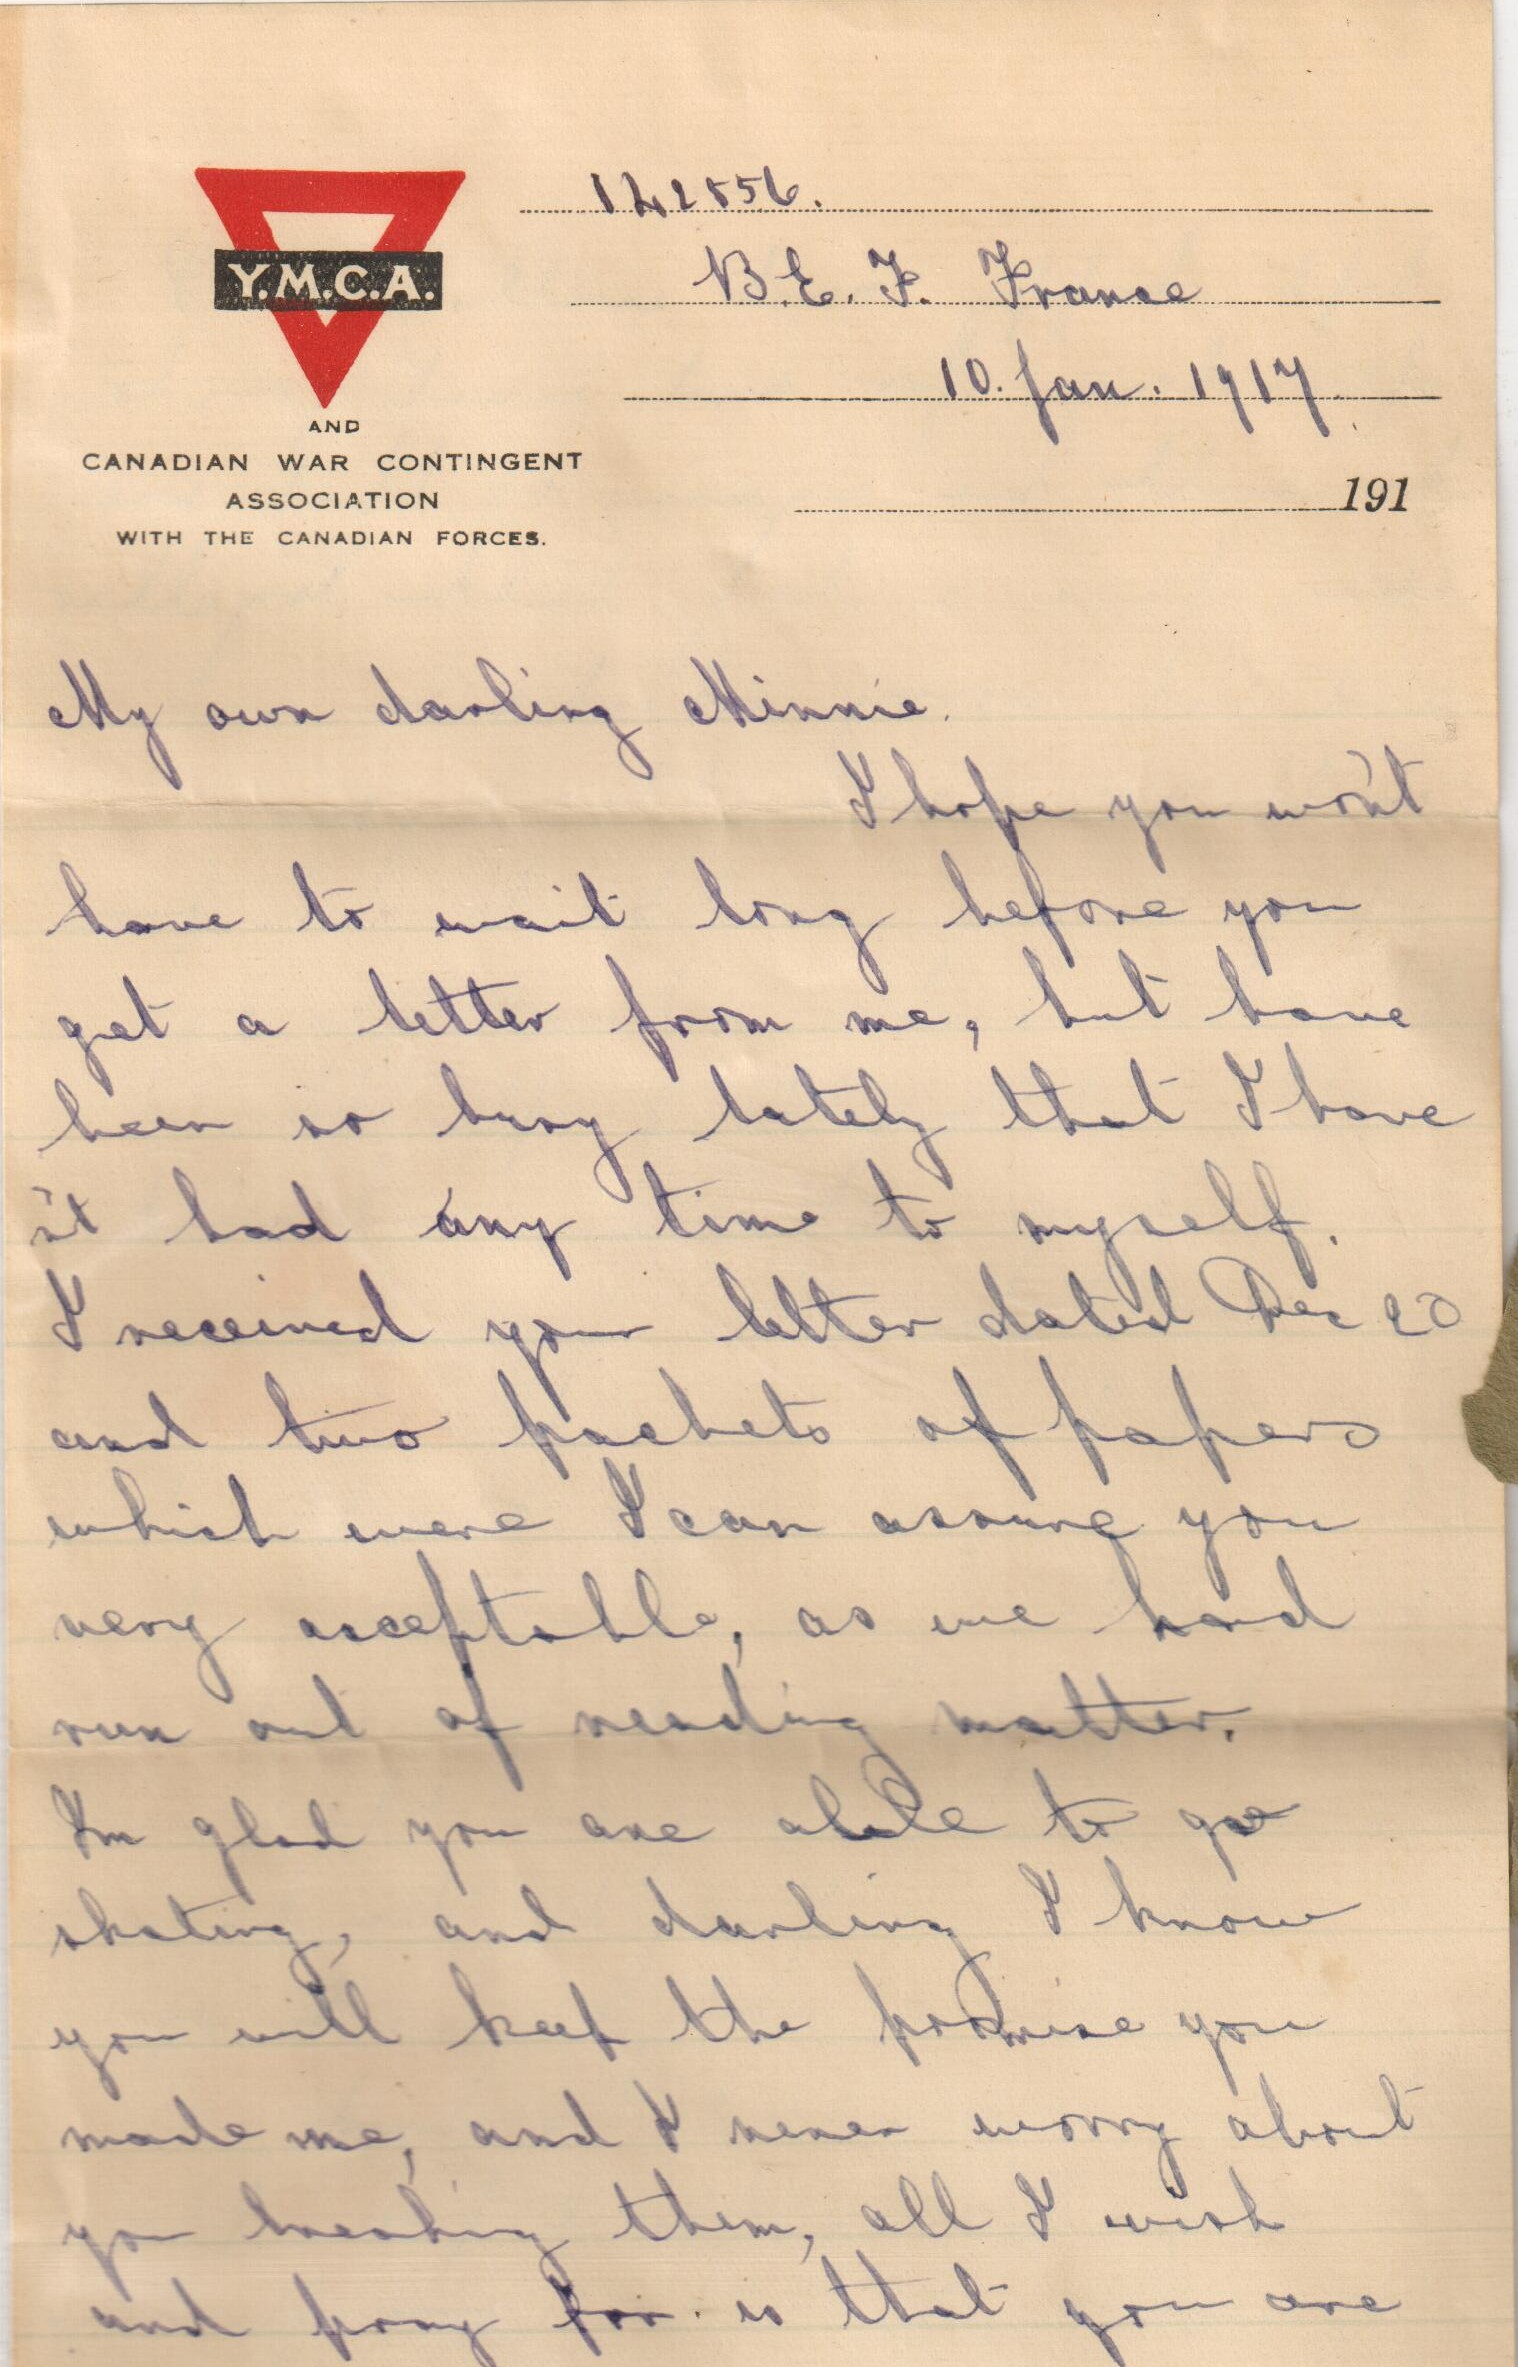 142556.
B.E.F. France
10. Jan. 1917.
191
Y.M.C.A.
AND
CANADIAN WAR CONTINGENT
ASSOCIATION
WITH THE CANADIAN FORCES.
My own darling Minnie.
I hope you won't
have to wait long before you
get a letter from me, but have
been so busy lately that I have
n't had any time to myself.
I received your letter dated Dec 20
and two packets of papers
which were I can assure you
very acceptable, as we had
run out of reading matter.
Im glad you are able to go
skating, and darling I know
you will keep the promise you
made me, and I never worry about
you breaking them, all I wish
and pray for is that you are